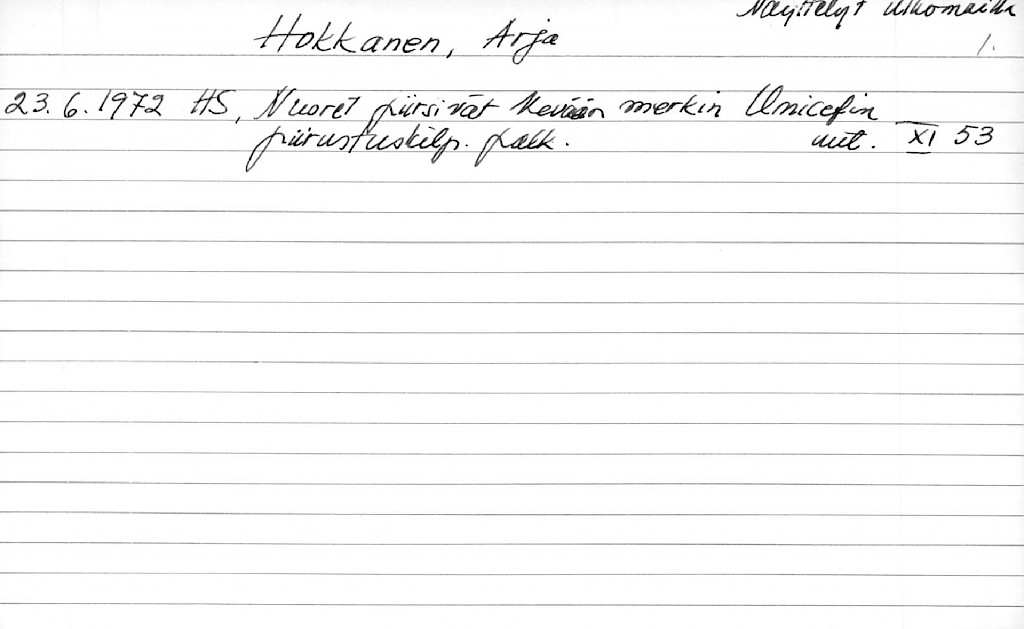 Näyttelyt ulkomailla
Hokkanen, Arja 1.
23.6.1972 HS, Nuoret piirsivät kevään merkin Unicefin
piirustuskilp. palk. uut. XI 53